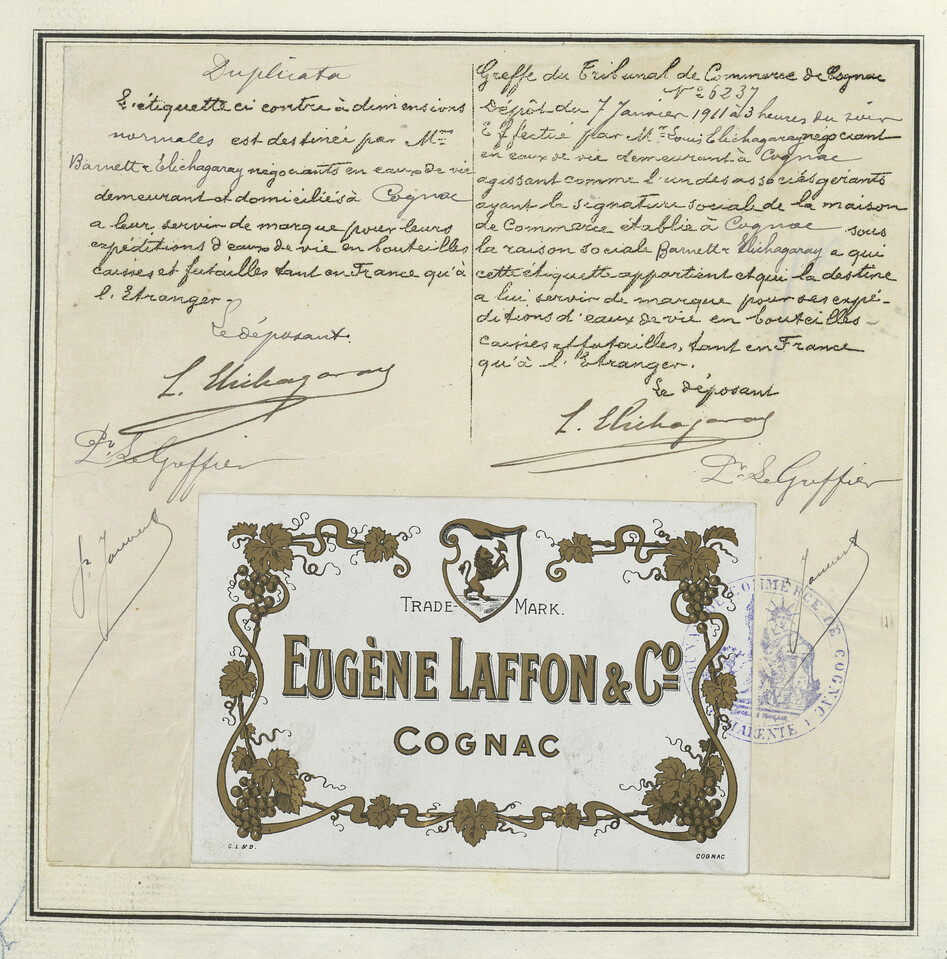 Duplicata
L'étiquette ci contre à dimensions
normales est destinée par Mrs
Barnett & Elichagaray négociants en eaux de vie
demeurant et domiciliés à Cognac
a leur servir de marque pour leurs
expéditions d'eaux de vie en bouteilles
caisses et futailles tant en France qu'à
l'Etranger.
Le déposant.
L. Elichagaray
Pr Le Greffier
Greffe du Tribunal de Commerce de Cognac
No 6237
Dépôt du 7 Janvier 1911 à 3 heures du soir
Effectué par Mr Louis Elichagaray négociant
en eaux de vie demeurant à Cognac
agissant comme l'un des associés gérants
ayant la signature sociale de la maison
de Commerce établie à Cognac sous
la raison sociale Barnett & Elichagaray a qui
cette étiquette appartient et qui la destine
a lui servir de marque pour ses expé-
ditions d'eaux de vie en bouteilles-
caisses et futailles, tant en France
qu'à l'Etranger.
Le déposant
L. Elichagaray
Pr Le Greffier
TRADE-MARK.
EUGÈNE LAFFON & Co
COGNAC
C.L.&D.
COGNAC
COMMERCE DE COGNAC
CHARENTE